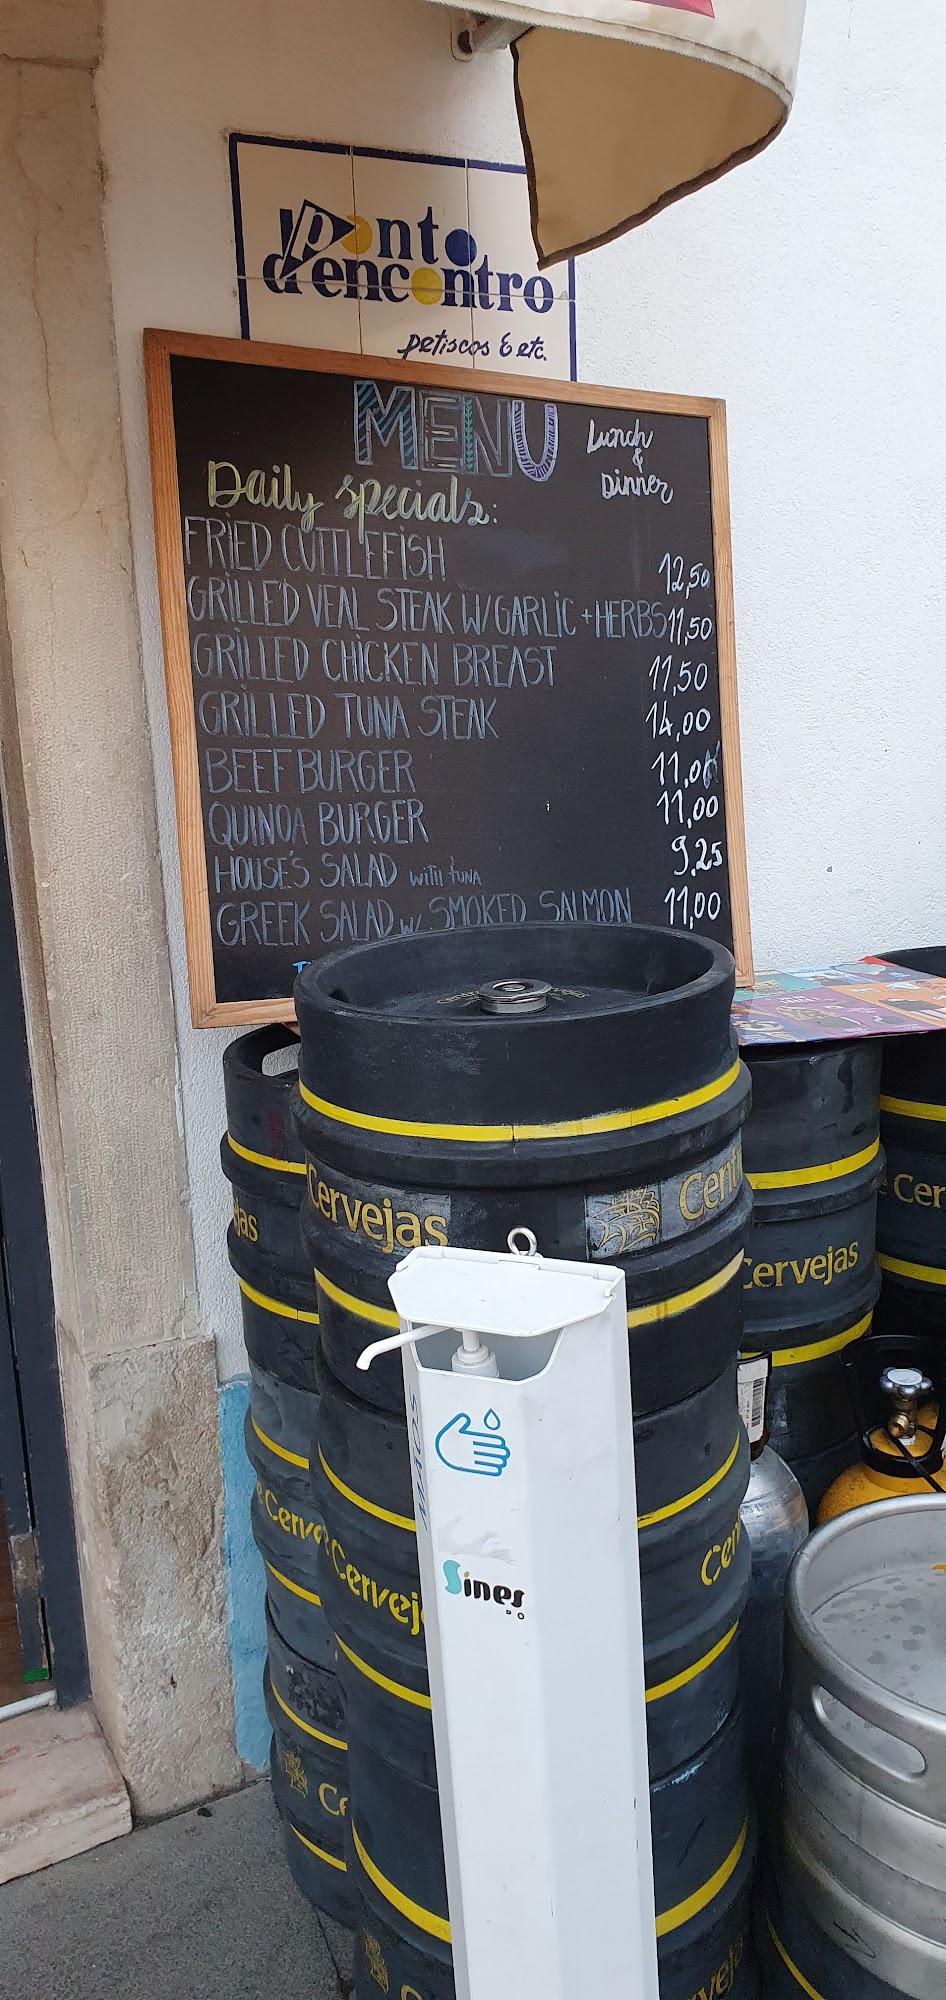 ponto
d'encontro
petiscos & etc.
MENU
Lunch
&
Dinner
Daily specials:
FRIED CUTTLEFISH 12,50
GRILLED VEAL STEAK W/ GARLIC + HERBS 11,50
GRILLED CHICKEN BREAST 11,50
GRILLED TUNA STEAK 14,00
BEEF BURGER 11,00
QUINOA BURGER 11,00
HOUSE'S SALAD with tuna 9,25
GREEK SALAD w/ SMOKED SALMON 11,00
Cervejas
Cervejas
Sines